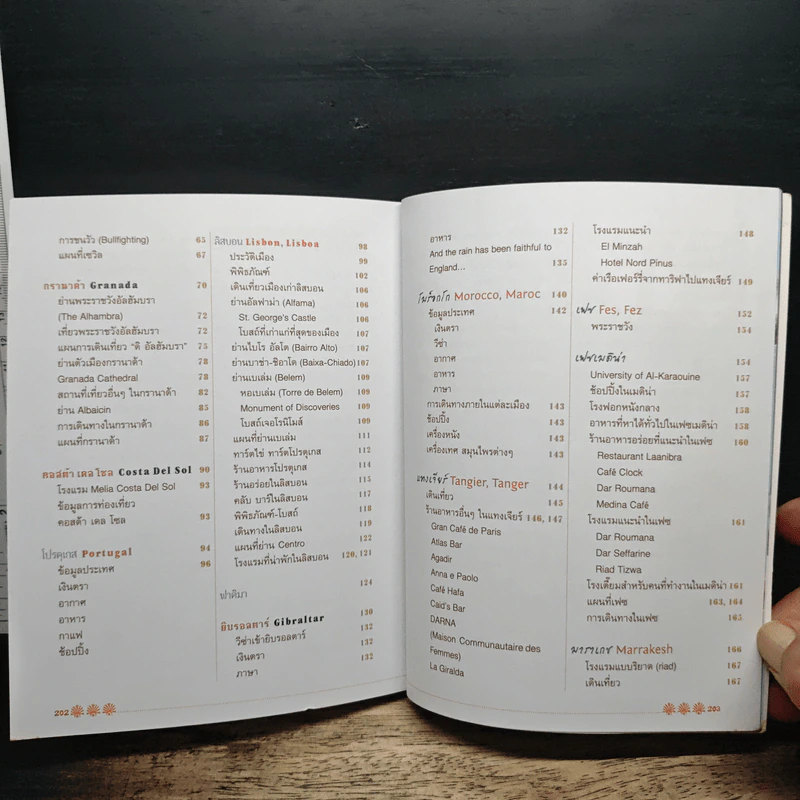 การชนวัว (Bullfighting) 65
แผนที่เซวิล 67
กรานาด้า Granada 70
ย่านพระราชวังอัลฮัมบรา
(The Alhambra) 72
เที่ยวพระราชวังอัลฮัมบรา 72
แผนการเดินเที่ยว "ดิ อัลฮัมบรา" 75
ย่านตัวเมืองกรานาด้า 78
Granada Cathedral 78
สถานที่เที่ยวอื่นๆ ในกรานาด้า 82
ย่าน Albaicin 85
การเดินทางในกรานาด้า 86
แผนที่กรานาด้า 87
คอสต้า เดล โซล Costa Del Sol 90
โรงแรม Melia Costa Del Sol 93
ข้อมูลการท่องเที่ยว
คอสต้า เดล โซล 93
โปรตุเกส Portugal 94
ข้อมูลประเทศ 96
เงินตรา
อากาศ
อาหาร
กาแฟ
ช้อปปิ้ง
202
ลิสบอน Lisbon, Lisboa 98
ประวัติเมือง 99
พิพิธภัณฑ์ 102
เดินเที่ยวเมืองเก่าลิสบอน 106
ย่านอัลฟาม่า (Alfama) 106
St. George's Castle 106
โบสถ์ที่เก่าแก่ที่สุดของเมือง 107
ย่านไบโร อัลโต (Bairro Alto) 107
ย่านบาช่า-ชิอาโด (Baixa-Chiado) 107
ย่านเบเล่ม (Belem) 109
หอเบเล่ม (Torre de Belem) 109
Monument of Discoveries 109
โบสถ์เจอโรนิโมส์ 109
แผนที่ย่านเบเล่ม 111
ทาร์ตไข่ ทาร์ตโปรตุเกส 112
ร้านอาหารโปรตุเกส 114
ร้านอร่อยในลิสบอน 115
คลับ บาร์ในลิสบอน 117
พิพิธภัณฑ์-โบสถ์ 118
เดินทางในลิสบอน 119
แผนที่ย่าน Centro 122
โรงแรมที่น่าพักในลิสบอน 120, 121
ฟาติมา 124
ยิบรอลตาร์ Gibraltar 130
วีซ่าเข้ายิบรอลตาร์ 132
เงินตรา 132
ภาษา
อาหาร 132
And the rain has been faithful to
England... 135
โมร็อกโก Morocco, Maroc 140
ข้อมูลประเทศ 142
เงินตรา
วีซ่า
อากาศ
อาหาร
ภาษา
การเดินทางภายในแต่ละเมือง 143
ช้อปปิ้ง 143
เครื่องหนัง 143
เครื่องเทศ สมุนไพรต่างๆ 143
แทงเจียร์ Tangier, Tanger 144
เดินเที่ยว 145
ร้านอาหารอื่นๆ ในแทงเจียร์ 146, 147
Gran Café de Paris
Atlas Bar
Agadir
Anna e Paolo
Café Hafa
Caid's Bar
DARNA
(Maison Communautaire des
Femmes)
La Giralda
โรงแรมแนะนำ 148
El Minzah
Hotel Nord Pinus
ค่าเรือเฟอร์รี่จากทาริฟาไปแทงเจียร์ 149
เฟซ Fes, Fez 152
พระราชวัง 154
เฟซเมดิน่า 154
University of Al-Karaouine 157
ช้อปปิ้งในเมดิน่า 157
โรงฟอกหนังกลาง 158
อาหารที่หาได้ทั่วไปในเฟซเมดิน่า 158
ร้านอาหารอร่อยที่แนะนำในเฟซ 160
Restaurant Laanibra
Café Clock
Dar Roumana
Medina Café
โรงแรมแนะนำในเฟซ 161
Dar Roumana
Dar Seffarine
Riad Tizwa
โรงเตี๊ยมสำหรับคนที่ทำงานในเมดิน่า 161
แผนที่เฟซ 163, 164
การเดินทางในเฟซ 165
มาราเกช Marrakesh 166
โรงแรมแบบริยาด (riad) 167
เดินเที่ยว 167
203